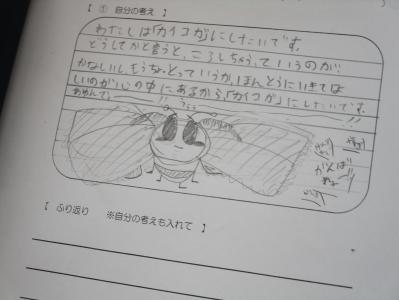 【 ① 自分の考え 】
わたしは「カイコガ」にしたいです。
どうしてかと言うと、ころしちゃうっていうのが
かなしいし、もうちょっとっていうか、ほんとうにいきてほ
しいのが心の中にあるから、「カイコガ」にしたいです。
がんば
【 ふり返り ※自分の考えも入れて 】